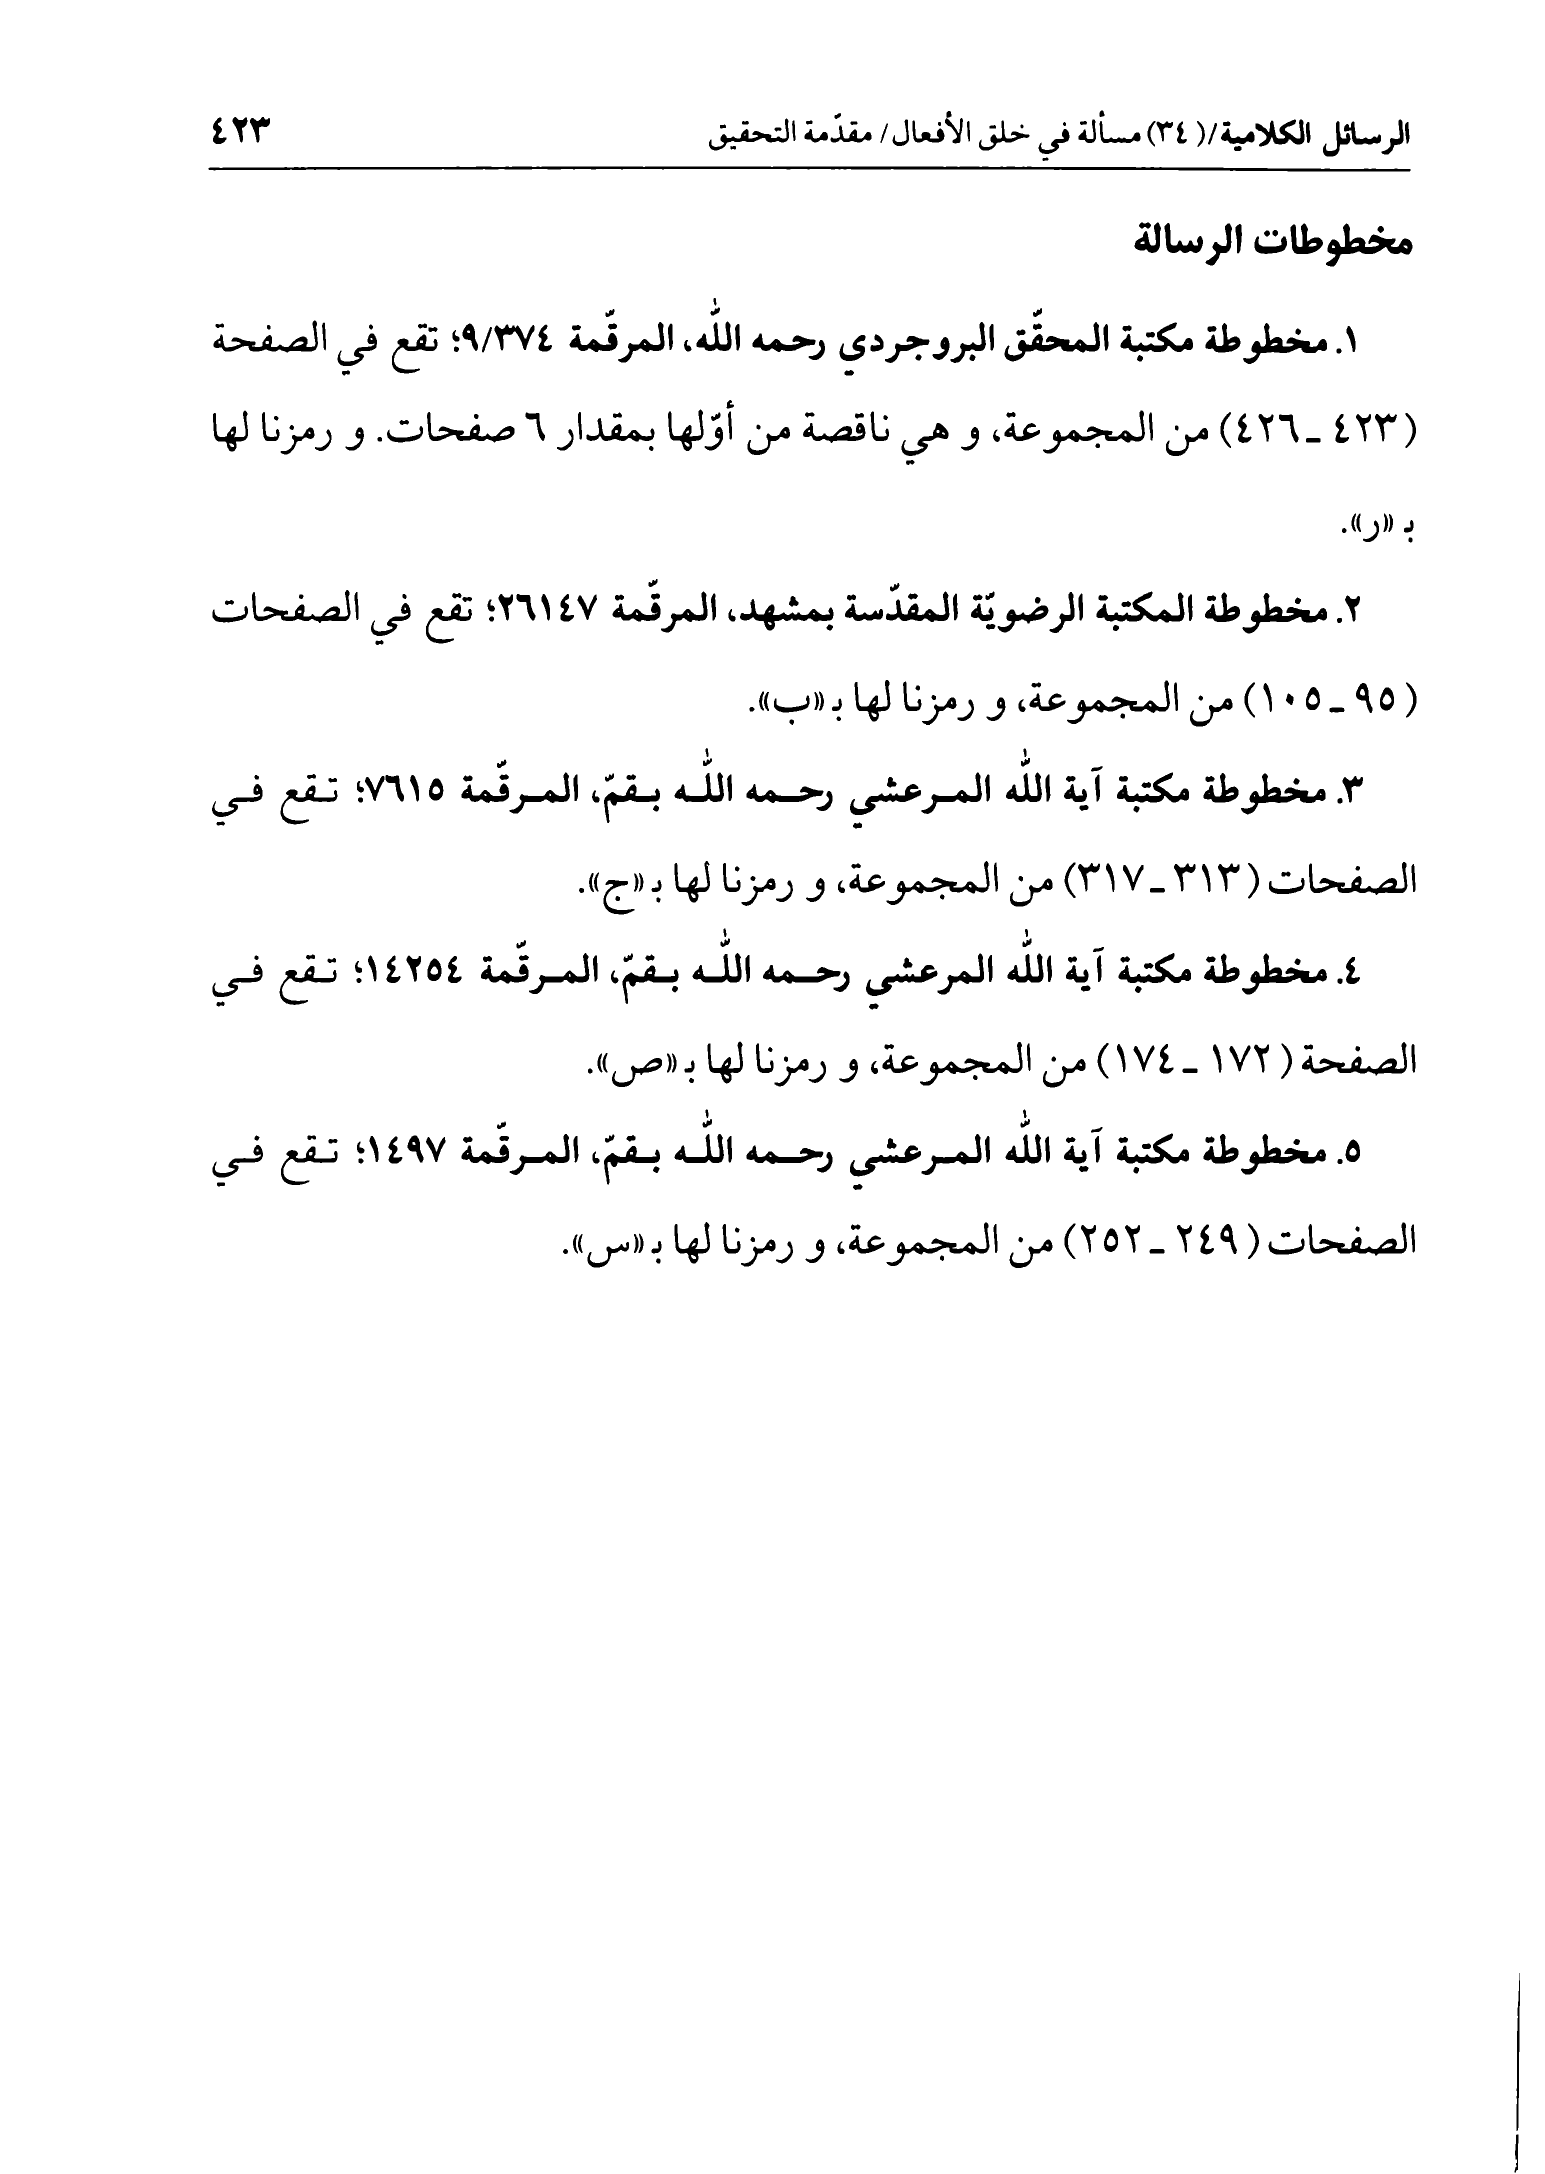 الرسائل الكلامية/(٣٤) مسألة في خلق الأفعال/ مقدّمة التحقيق ٤٢٣
مخطوطات الرسالة
١. مخطوطة مكتبة المحقّق البروجردي رحمه الله، المرقّمة ٩/٣٧٤؛ تقع في الصفحة
(٤٢٣ ـ ٤٢٦) من المجموعة، و هي ناقصة من أوّلها بمقدار ٦ صفحات. و رمزنا لها
بـ «ر».
٢. مخطوطة المكتبة الرضويّة المقدّسة بمشهد، المرقّمة ٢٦١٤٧؛ تقع في الصفحات
(٩٥ ـ ١٠٥) من المجموعة، و رمزنا لها بـ «ب».
٣. مخطوطة مكتبة آية الله المرعشي رحمه الله بقمّ، المرقّمة ٧٦١٥؛ تقع في
الصفحات (٣١٣ ـ ٣١٧) من المجموعة، و رمزنا لها بـ «ج».
٤. مخطوطة مكتبة آية الله المرعشي رحمه الله بقمّ، المرقّمة ١٤٢٥٤؛ تقع في
الصفحة (١٧٢ ـ ١٧٤) من المجموعة، و رمزنا لها بـ «ص».
٥. مخطوطة مكتبة آية الله المرعشي رحمه الله بقمّ، المرقّمة ١٤٩٧؛ تقع في
الصفحات (٢٤٩ ـ ٢٥٢) من المجموعة، و رمزنا لها بـ «س».